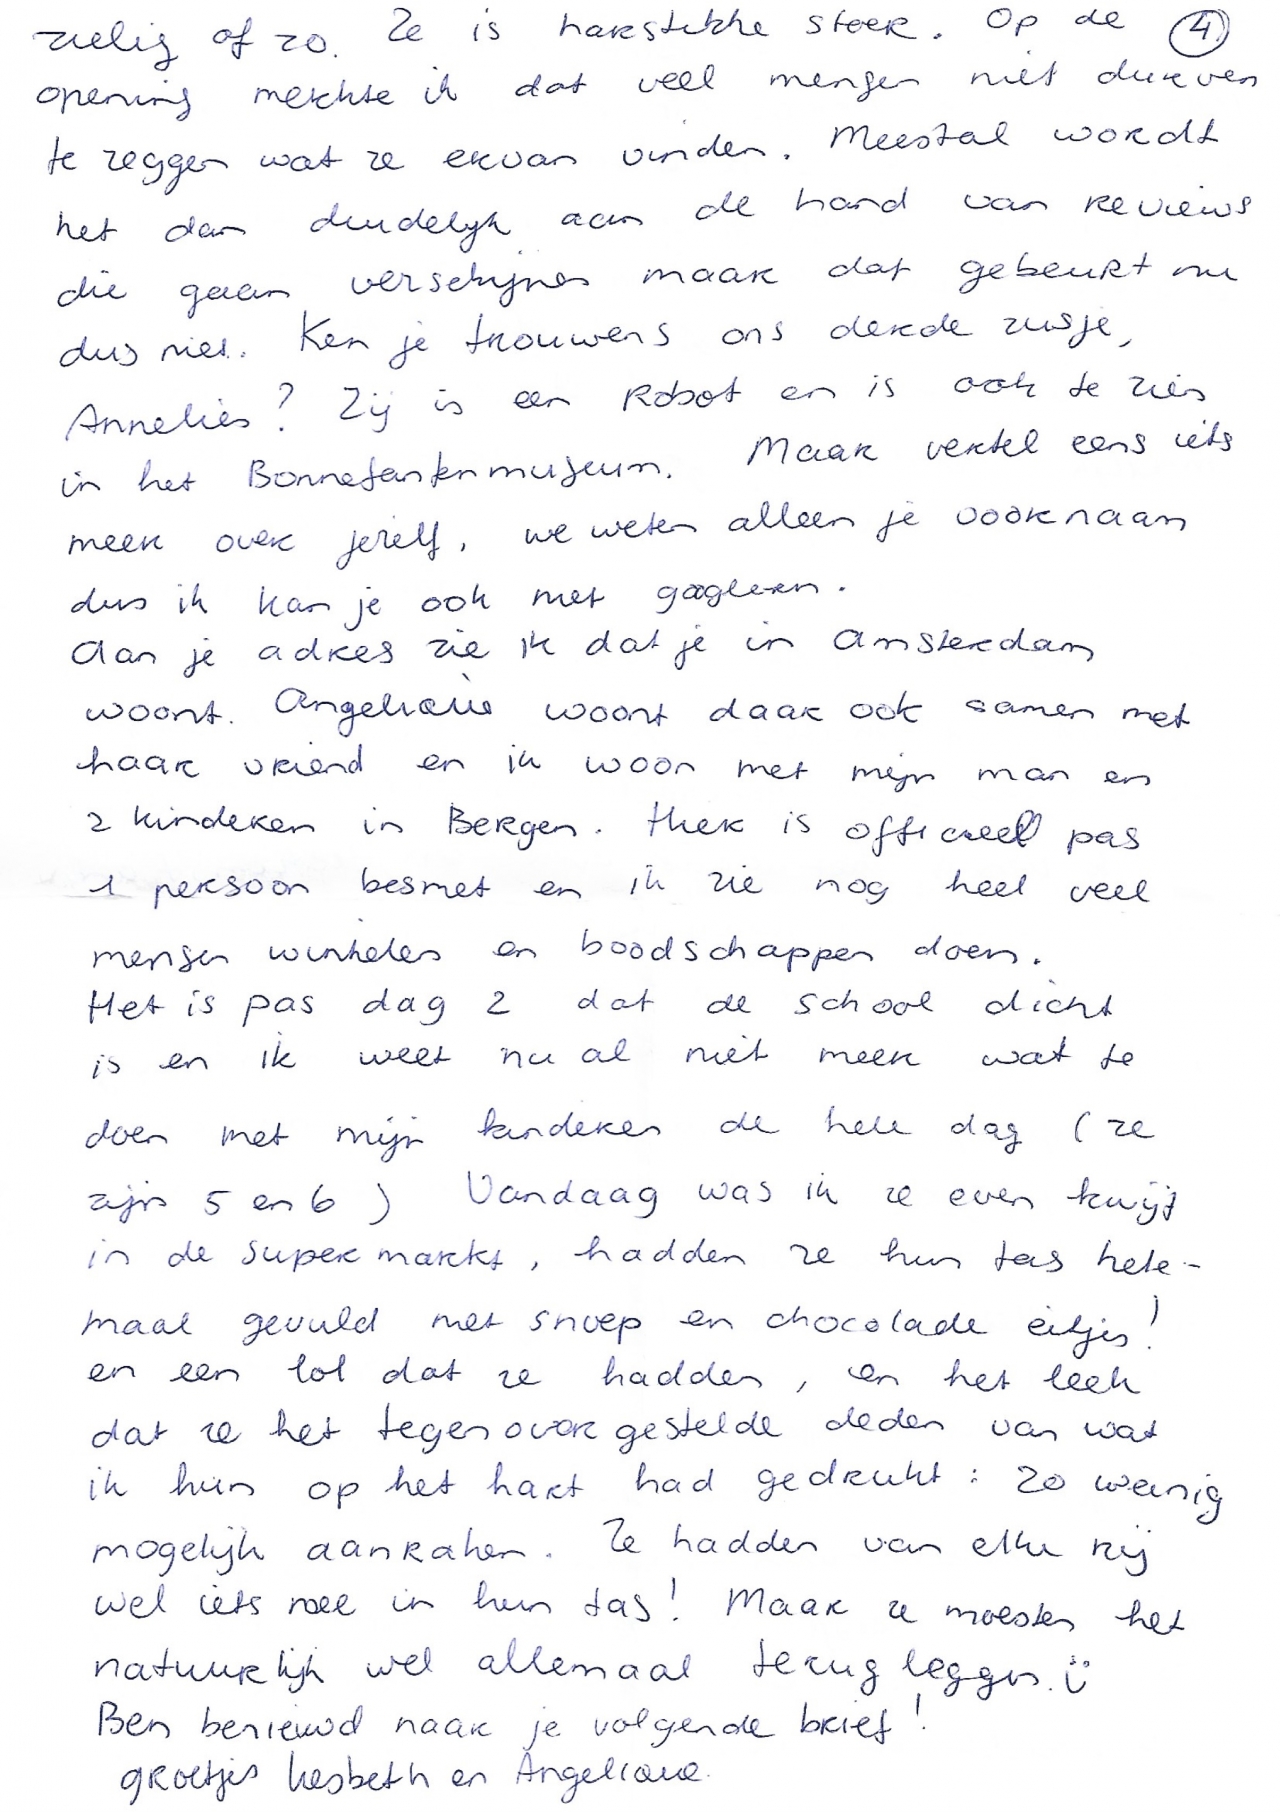 zielig of zo. Ze is hartstikke sterk. Op de ④
opening merkte ik dat veel mensen niet durven
te zeggen wat ze ervan vinden. Meestal wordt
het dan duidelijk aan de hand van reviews
die gaan verschijnen maar dat gebeurt nu
dus niet. Ken je trouwens ons derde zusje,
Annelies? Zij is een Robot en is ook te zien
in het Bonnefantenmuseum. Maar vertel eens iets
meer over jezelf, we weten alleen je voornaam
dus ik kan je ook niet googlen.
Aan je adres zie ik dat je in Amsterdam
woont. Angelique woont daar ook samen met
haar vriend en ik woon met mijn man en
2 kinderen in Bergen. Hier is officieel pas
1 persoon besmet en ik zie nog heel veel
mensen winkelen en boodschappen doen.
Het is pas dag 2 dat de school dicht
is en ik weet nu al niet meer wat te
doen met mijn kinderen de hele dag (ze
zijn 5 en 6) Vandaag was ik ze even kwijt
in de supermarkt, hadden ze hun tas hele-
maal gevuld met snoep en chocolade eitjes!
en een lol dat ze hadden, en het leek
dat ze het tegenovergestelde deden van wat
ik hun op het hart had gedrukt: zo weinig
mogelijk aanraken. Ze hadden van elke rij
wel iets mee in hun tas! Maar ze moesten het
natuurlijk wel allemaal terug leggen. ü
Ben benieuwd naar je volgende brief!
groetjes Liesbeth en Angelique.